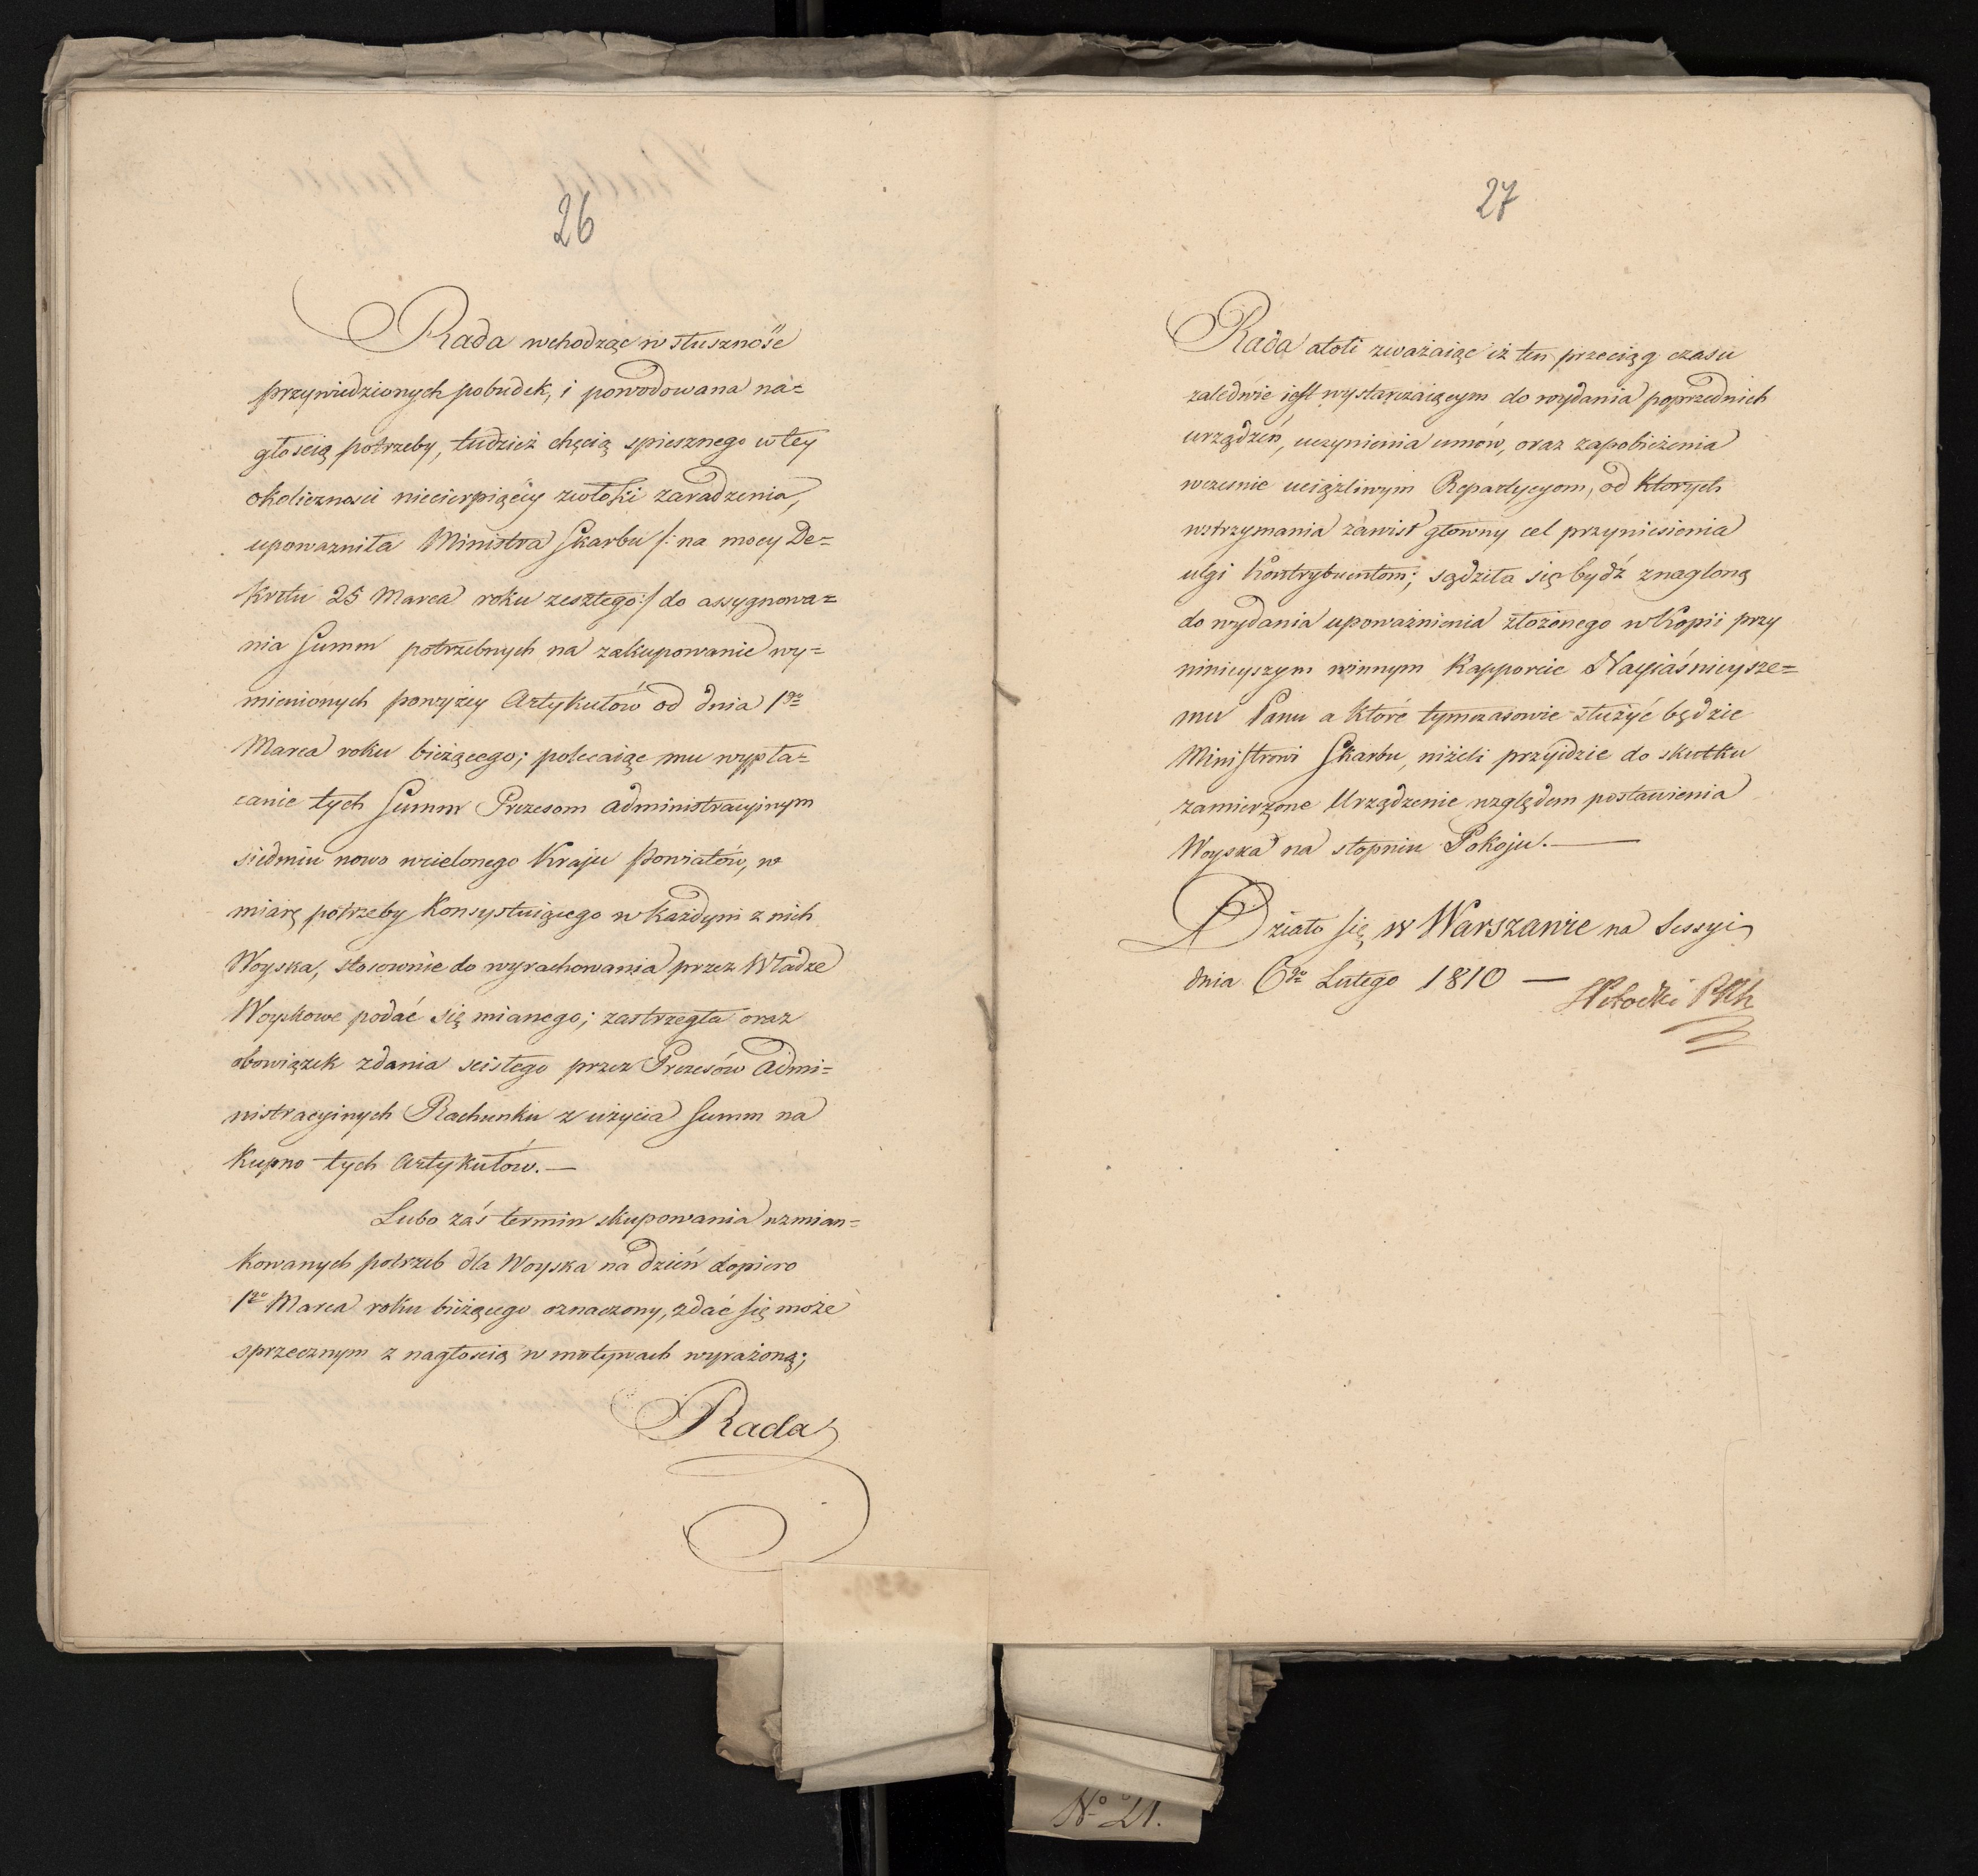 26
Rada wchodząc w słuszność
przywiedzionych pobudek, i powodowana na=
głością potrzeby, tudzież chęcią spiesznego w tey
okoliczności niecierpiącéy zwłoki zaradzenia,
upoważniła Ministra Skarbu /: na mocy De=
kretu 25 Marca roku zeszłego :/ do assygnowa=
nia Summ potrzebnych na zakupowanie wy=
mienionych powyżey Artykułów od dnia 1go
Marca roku bieżącego; polecaiąc mu wypła=
canie tych Summ Prezesom administracyinym
siedmiu nowo wcielonego Kraju Powiatów, w
miarę potrzeby Konsystuiącego w każdym z nich
Woyska, stosownie do wyrachowania przez Władze
Woyskowe podać się mianego; zastrzegła oraz
obowiązek zdania scisłego przez Prezesów Admi=
nistracyinych Rachunku z użycia Summ na
Kupno tych Artykułów.—
Lubo zaś termin skupowania wzmian=
kowanych potrzeb dla Woyska na dzień dopiero
1go Marca roku bieżącego oznaczony, zdać się może
sprzecznym z nagłością w motywach wyrażoną;
Rada
27
Rada atoli zważaiąc iż ten przeciąg czasu
zaledwie iest wystarczaiącym do wydania poprzednich
urządzeń, uczynienia umów, oraz zapobieżenia
wczesnie uciążliwym Repartycyom, od których
wstrzymania zawisł główny cel przyniesienia
ulgi Kontrybuentom; sądziła się bydź znagloną
do wydania upoważnienia złożonego w Kopii przy
ninieyszym winnym Rapporcie Nayiaśnieysze=
mu Panu a które tymczasowie służyć będzie
Ministrowi Skarbu, niżeli przyidzie do skutku
zamierzone Urządzenie względem postawienia
Woyska na stopniu Pokoju.—
Działo się w Warszawie na Sessyi
dnia 6go Lutego 1810 —
No 21.